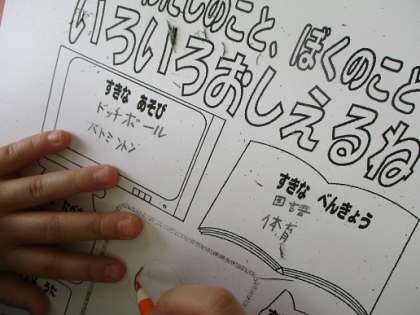 わたしのこと、ぼくのこと
いろいろおしえるね
すきな あそび
ドッチボール
バトミントン
すきな べんきょう
国語
体育